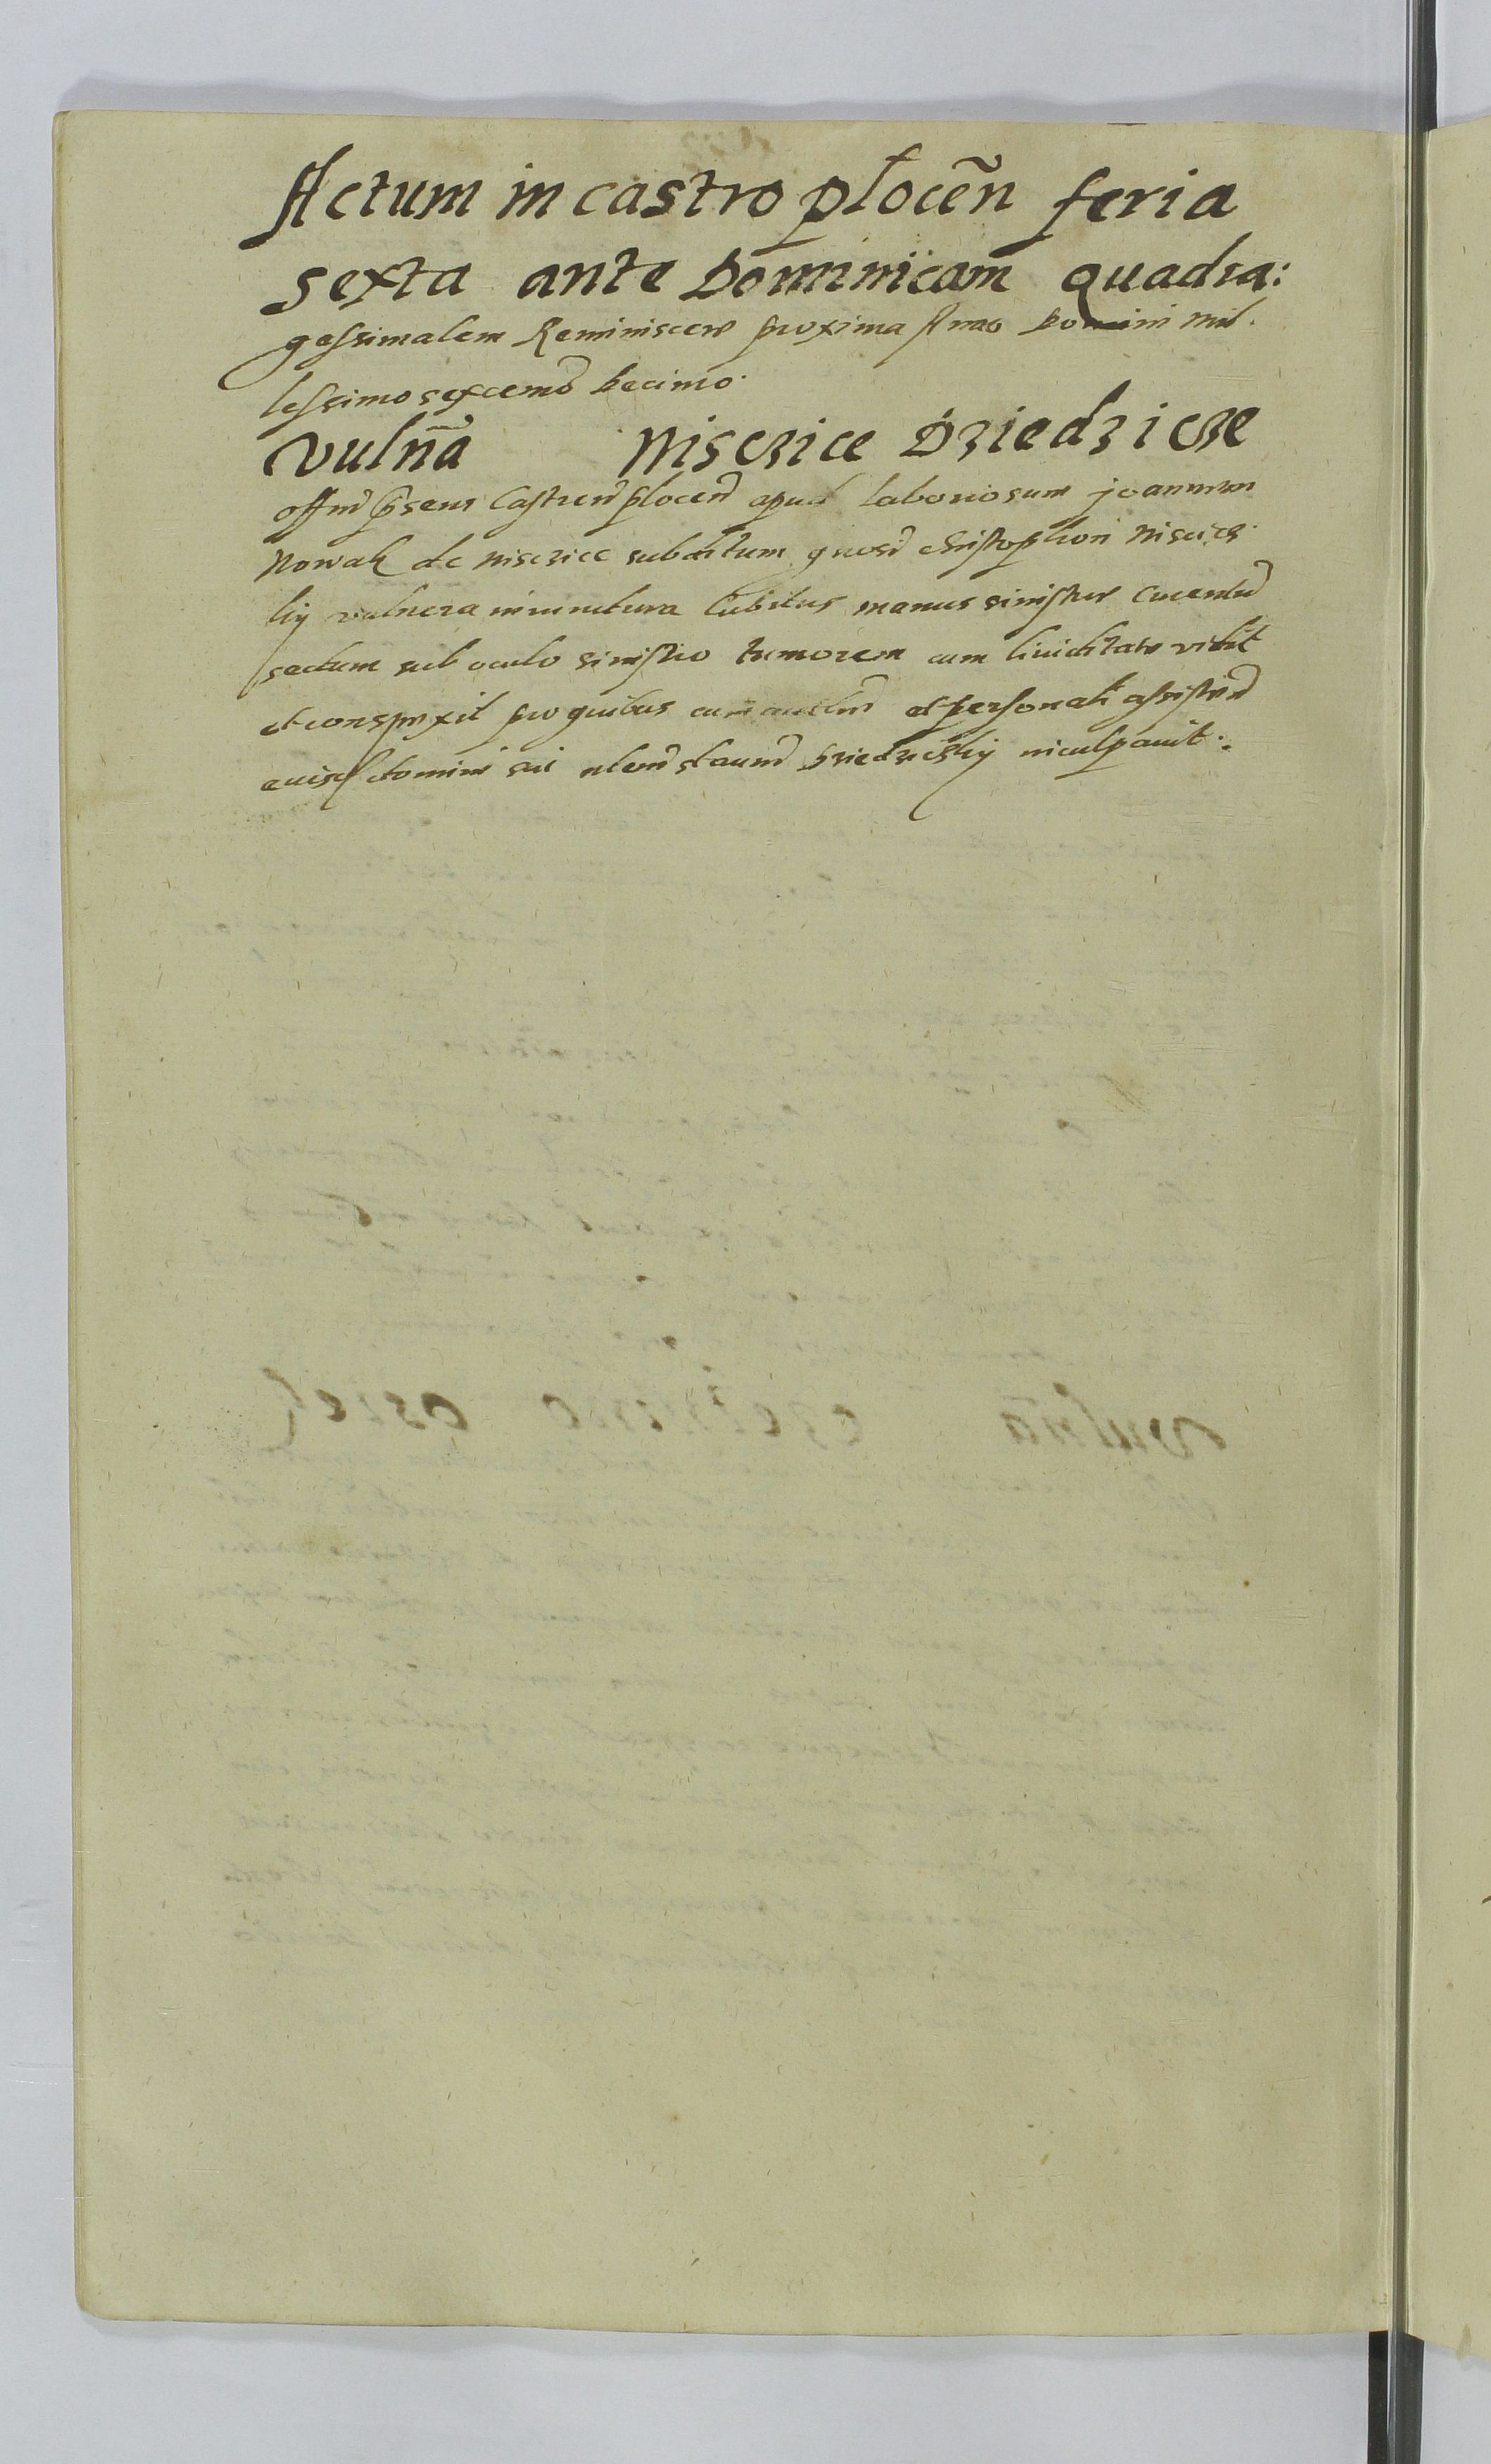 Actum in castro plocen̄ feria
sexta ante Dominicam quadra:
gessimalem Reminiscere proxima Anno Domini mil.
lessimo sexcenn̄ Decimo.
Vuln̄a Niscrice Dziedzicze
offin̄ p̄sens Castren̄ plocen̄ apud laboriosum joannem
Nowak de niscrice subditum gnosi christophori niscric
kij vulnera in iunctura cubitus manus sinistre cruentu̅
sectum sub oculo sinistro tumorem cum liuiditate vidit
et conspexit pro quibus cum personali assisten̄
domini sui dziedziczkij inculpauit.